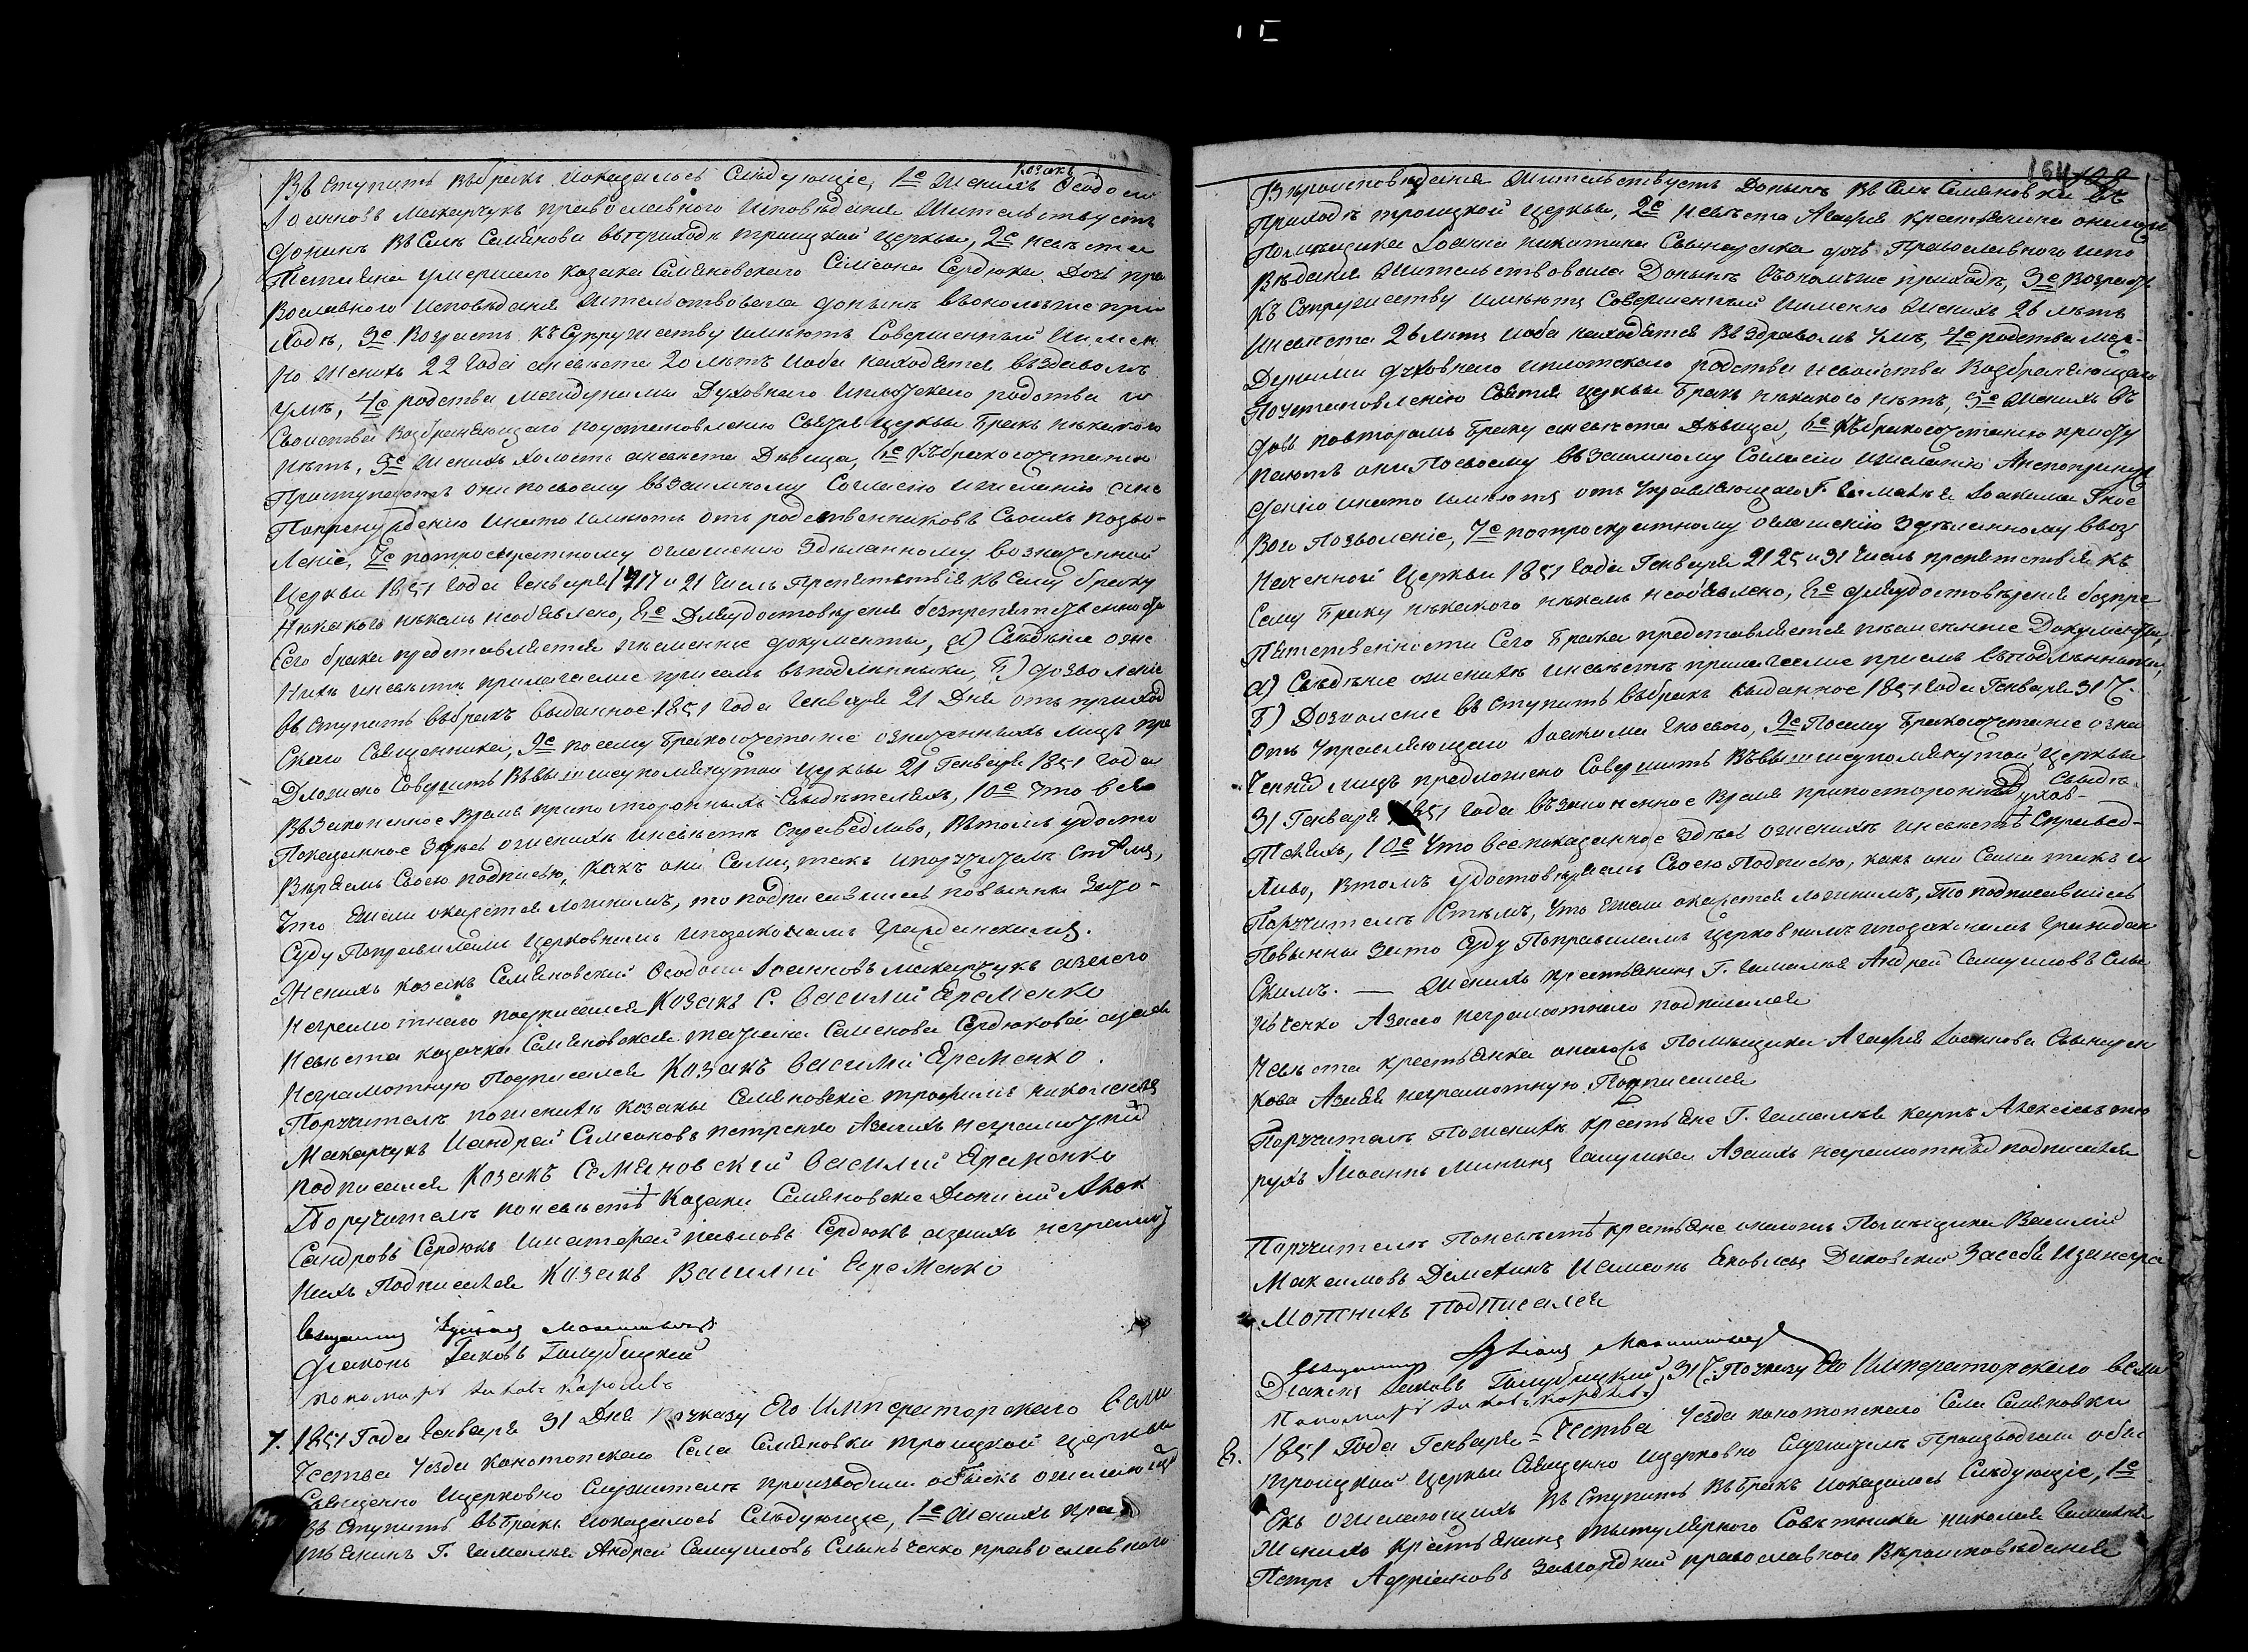 Козакъ
Въ ступить въбракъ ипоказалось Слѣдующіе, 1е Женихъ Ѳеодосій
Іоанновъ Макарчукъ православного исповѣданія Жительствуетъ
донинѣ въ Селѣ Семяновки въприходѣ троицкой церкви, 2е невѣста
Татіяна умершаго козака Семяновского Симеона Сердюка дочь пра
вославного исповѣданія жительствовала донынѣ вьономъже при
ходѣ, 3е Возрастъ къ Супружеству имѣютъ Совершенный именно
но женихъ 22 года аневѣста 20 лѣтъ иоба находятся въздравомъ
умѣ, 4е родства междуними Духовнаго иплотскаго родства и
Свойства возбраняющаго поустановленію Святыя церкви бракъ никакого
нѣтъ, 5е Женихъ холостъ аневѣста Дѣвица, 6е Къбракосочетанію
Приступаютъ они посвоему възаимному Согласію ижеланію ане
Попринужденію инато имѣютъ отъ родственниковъ Своихъ позво-
леніе, 7е потроекратному оглашенію здѣланному возначенной
церкви 1851 года генваря 17 и 21 числъ Препятствія къ Сему браку
Никакого никемъ необявлено, 8е Дляудостовѣренія безпрепятственности
Сего брака представляется писменные документы, а) Свѣдѣніе оже
нихѣ иневѣстѣ прилагаемое присемъ въподлинники, б) дозволеніе
въступить въбракъ выданное 1851 года генваря 21 Дня отъ приход
скаго Священника, 9е посему бракосочетаніе означенныхъ лицъ пре
дложено Совершить въвышеупомянутой церкви 21 Генваря 1851 года
въ законное время припостороннихъ Свидѣтеляхъ, 10е что все
Показанное здѣсь оженихѣ иневѣстѣ справедливо, вътомъ удосто
вѣряемъ Своею подписью, какъ они Сами, такъ ипоручители стѣмъ,
Что Ежели окажется ложнимъ, то подписавшіесь повынны зато-
Суду поправиламъ церковнимъ ипозаконамъ гражданскимъ.
Женихъ козакъ Семяновскій Ѳеодосій Іоанновъ Макарчукъ азанего
неграмотнаго подписался Козакъ С. Василій Еременко
Невѣста козачка Семяновская татіяна Семенова Сердюковая азанея
неграмотную Подписался Козакъ Василій Еременко.
Поручители поженихѣ козаки Семяновскіе трофимъ николаевъ
Макарчукъ иандрей Симеоновъ петренко Азанихъ неграмотныхъ
подписался Козакъ Семяновскій Василій Еременко
Поручители поневѣстѣ Козаки Семяновскіе Діонисій Алек
Сандровъ Сердюкъ иматфей павловъ Сердюкъ азанихъ неграмот
ныхъ Подписался Козакъ Василій Еременко
Священникъ
Діаконъ Іаковъ Голубицкій
пономарь Іаковъ Королевъ
7. 1851 Года Генваря 31 Дня поуказу Его Императорскаго Вели
чества уезда конотопскаго Села Семяновки троицкой церкви
Священно ицерковно служители производили обыскъ ожелающихъ
въ ступить въбракъ ипоказалось Слѣдующіе, 1е Женихъ крес
тьянинъ Г. Андрей Самуиловъ православного
164
Вѣроисповѣданія Жительствуетъ Донынѣ въ Селѣ Семяновки въ
Приходѣ троицкой церкви, 2е невѣста Агафія крестьянина
Помѣщика Іоанна никитина дочь Православного испо
вѣданія Жительствовала Донынѣ вьономъже приходѣ, 3е Возрастъ
Къ Супружеству имѣютъ Совершенный именно Женихъ 26 лѣтъ
иневѣста 26 лѣтъ иоба находятся въ здравомъ умѣ, 4е родства меж-
Дуними духовнаго иплотскаго родства исвойства возбраняющаго
Поустановленію Святыя церкви бракъ никакого нѣтъ, 5е Женихъ въ
довъ повторомъ браку аневѣста Дѣвица, 6е Къбракосочетанію присту
паютъ они Посвоему възаимному Согласію ижеланію Анепопринуж
денію инато имѣютъ отъ управляющаго Г. Іоакима Гное
вого Позволеніе, 7е потроекратному оглашенію здѣланному воз
наченной церкви 1851 года Генваря 21 25 и 31 числъ препятствія къ
Сему браку никакого никемъ необявлено, 8е дляудостовѣренія безпре
пятственности Сего брака представляется писменные Документы,
а) Свѣдѣніе оженихѣ иневѣстѣ прилагаемое присемъ въподлинники,
б) Дозволеніе въступить въбракъ выданное 1851 года Генваря 31 Ч.
отъ управляющаго Іоакима Гноевого, 9е Посему бракосочетаніе озна
ченныхъ лицъ предложено Совершить въвышеупомянутой церкви
31 Генваря 1851 года въ законное время припостороннихъ Свидѣ-
теляхъ, 10е Что все показанное здѣсь оженихѣ иневѣстѣ Справед-
ливо, втомъ удостовѣряемъ Своею Подписью, какъ они Сами такъ и
Поручители Стѣмъ, что Ежели окажется ложнимъ, то подписавшіесь
Повынны зато Суду Поправиламъ церковнимъ ипозаконамъ граждан
скимъ. — Женихъ крестьянинъ Г. Андрей Самуиловъ
Азанего неграмотнаго подписался
Невѣста крестьянка Помѣщика Агафія Іоаннова
кова Азанея неграмотную Подписался
Поручители Поженихѣ крестьяне Г. карпъ
Иоаннъ Мининъ Галушка Азанихъ неграмотныхъ подписался
Поручители Поневѣстѣ крестьяне Помѣщика Василій
Максимовъ исимеонъ Яковлевъ Засебя изанегра
мотнихъ подписался
Священникъ
Діаконъ Іаковъ Голубицкій
Пономарь Іаковъ Королевъ
8. 1851 Года Генваря 31 Ч. Поуказу Его Императорскаго Вели
чества уезда конотопскаго Села Семяновки
троицкой церкви Священно ицерковно Служители Производили обы
Скъ ожелающихъ въ ступить въбракъ ипоказалось Слѣдующіе, 1е
Женихъ крестьянинъ тытулярного Совѣтника николая
Петръ Адріановъ православного Вѣроисповѣданія